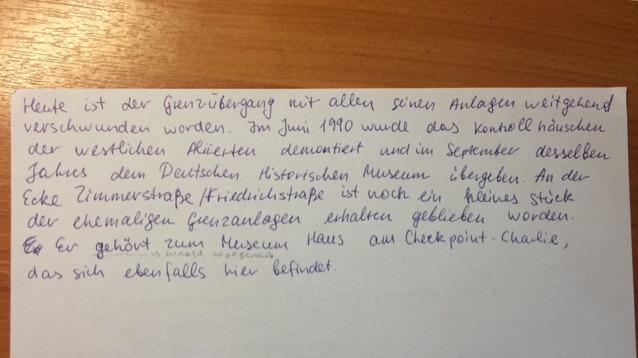 Heute ist der Grenzübergang mit allen seinen Anlagen weitgehend
verschwunden worden. Im Juni 1990 wurde das Kontrollhäuschen
der westlichen Aliierten demontiert und im September desselben
Jahres dem Deutschen Historischen Museum übergeben. An der
Ecke Zimmerstraße/Friedrichstraße ist noch ein kleines Stück
der ehemaligen Grenzanlagen erhalten geblieben worden.
Er gehört zum Museum Haus am Checkpoint-Charlie,
das sich ebenfalls hier befindet.